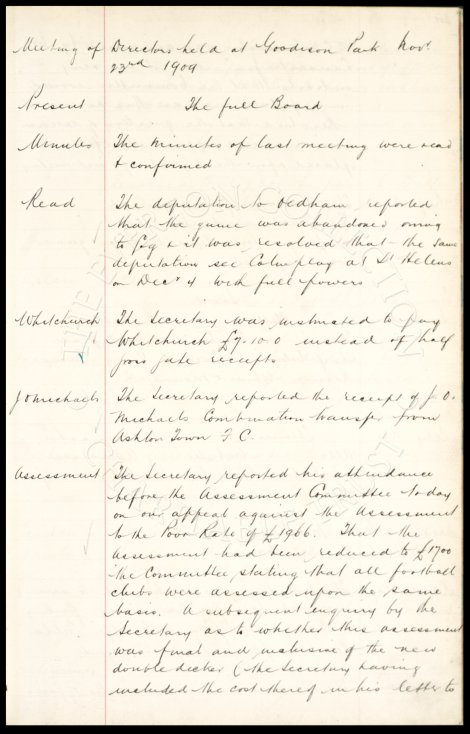 Meeting of Directors held at Goodison Park Novr
23rd 1909
Present The full Board
Minutes The minutes of last meeting were read
& confirmed
Read The deputation to Oldham reported
that the game was abandoned owing
to fog & it was resolved that the same
deputation see play at St Helens
on Decr 4 with full powers
Whitchurch The Secretary was instructed to pay
Whitchurch £7-10-0 instead of half
gross gate receipts
J O Michaels The Secretary reported the receipt of J. O.
Michaels Combination transfer from
Ashton Town F C.
Assessment The Secretary reported his attendance
before the Assessment Committee today
on our appeal against the Assessment
to the Poor Rate of £1966. That the
Assessment had been reduced to £1700
the Committee stating that all football
clubs were assessed upon the same
basis. A subsequent enquiry by the
Secretary as to whether this assessment
was final and inclusive of the new
double decker (the Secretary having
included the cost thereof in his letter to